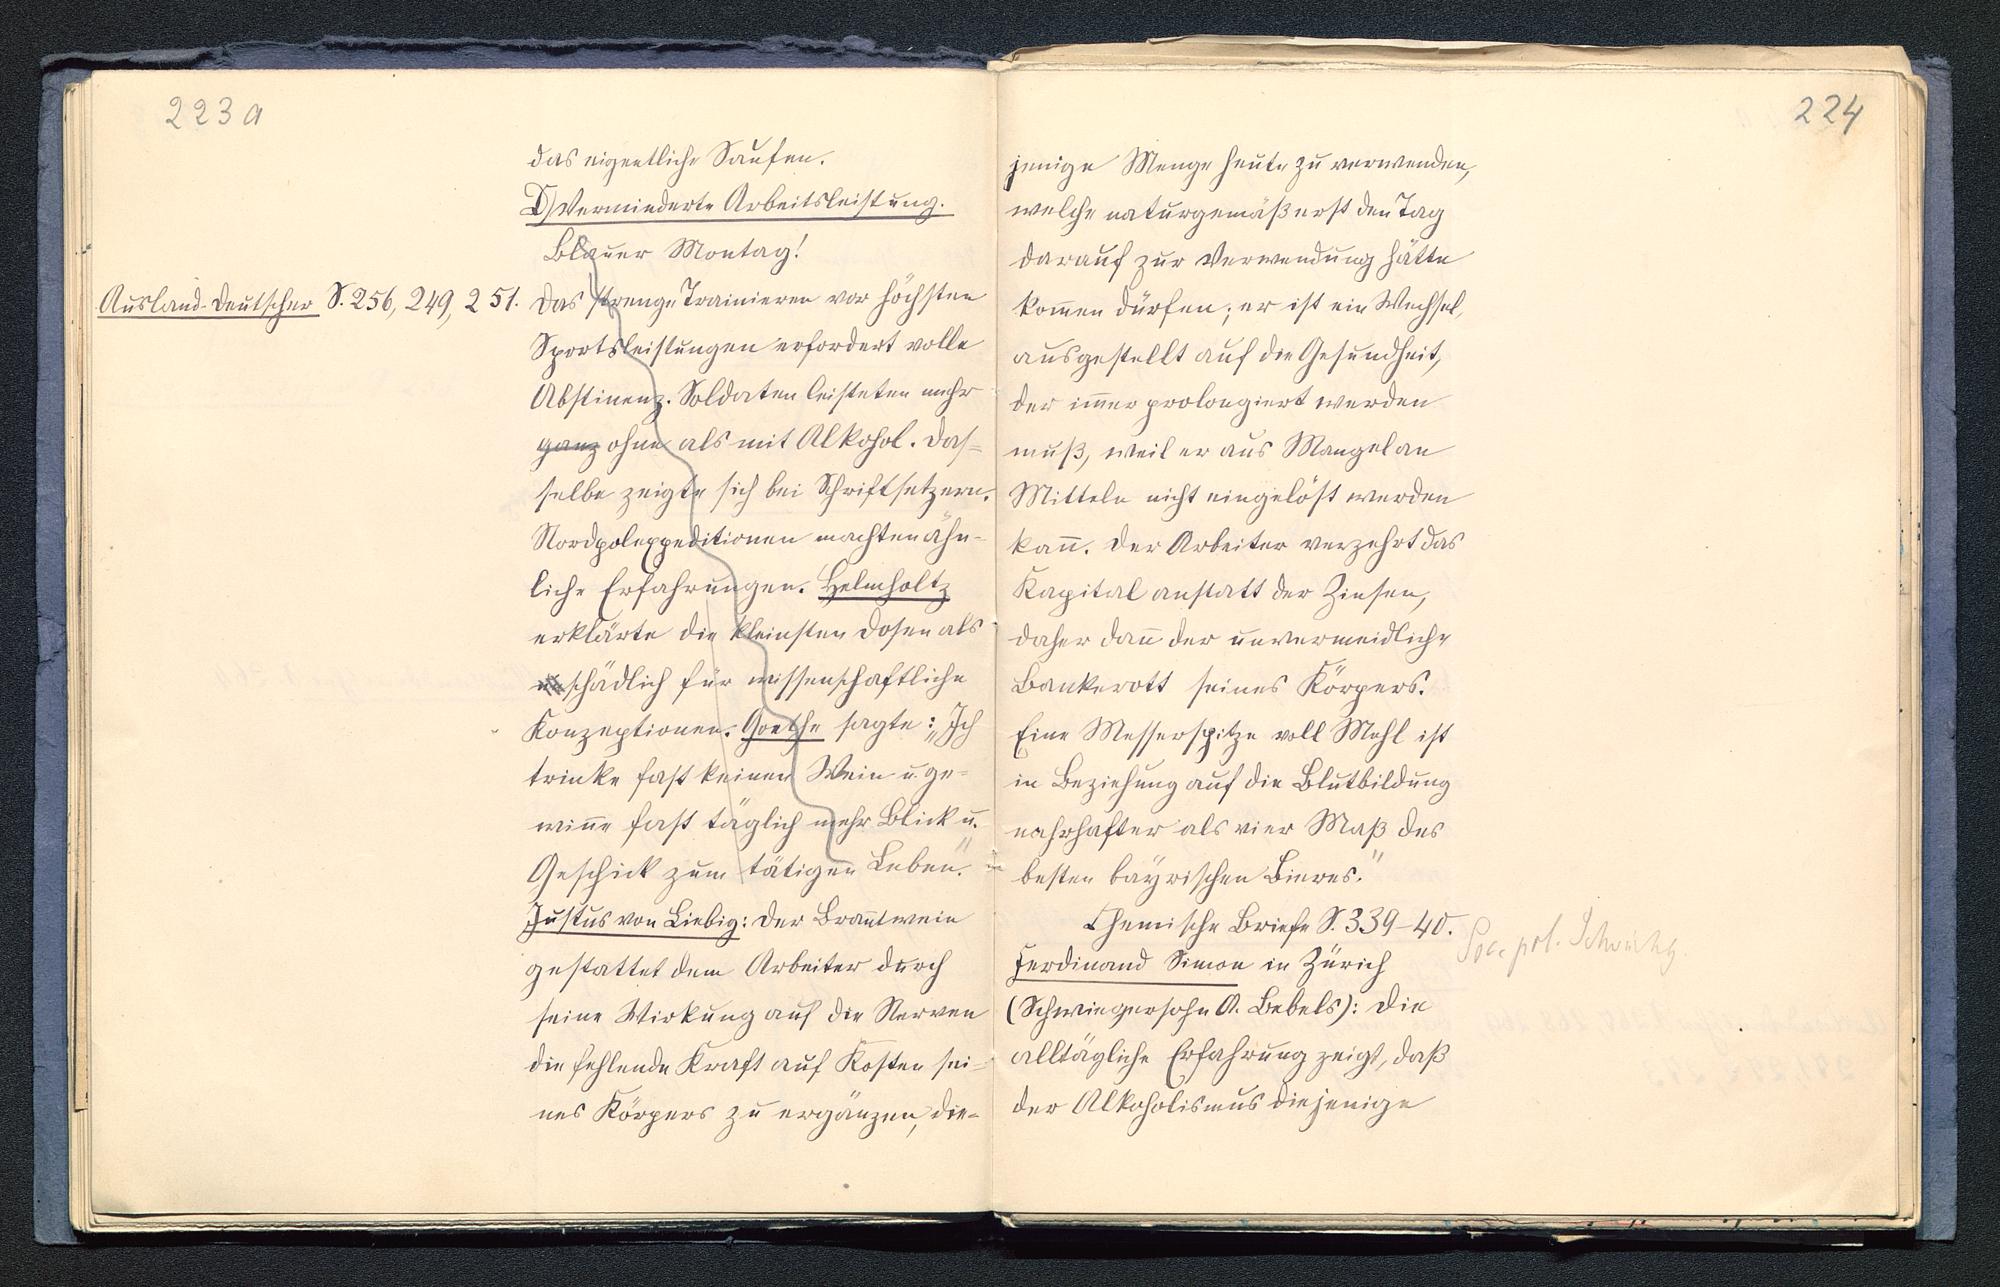 223a
das eigentliche Saufen.
D) Verminderte Arbeitsleistung.
Blauer Montag!
Ausland-Deutscher S. 256, 249, 251.
Das strenge Trainieren vor höchsten
Sportsleistungen erfordert volle
Abstinenz. Soldaten leisteten mehr
ganz ohne als mit Alkohol. Das=
selbe zeigte sich bei Schriftsetzern.
Nordpolexpeditionen machten ähn=
liche Erfahrungen. Helmholtz
erklärte die kleinsten Dosen als
schädlich für wissenschaftliche
Konzeptionen. Goethe sagte: „Ich
trinke fast keinen Wein u. ge=
winne fast täglich mehr Blick u.
Geschick zum tätigen Leben."
Justus von Liebig: Der Branntwein
gestattet dem Arbeiter durch
seine Wirkung auf die Nerven
die fehlende Kraft auf Kosten sei=
nes Körpers zu ergänzen, die=
224
jenige Menge heute zu verwenden,
welche naturgemäß erst den Tag
darauf zur Verwendung hätte
kom̅en dürfen; er ist ein Wechsel,
ausgestellt auf die Gesundheit,
der im̅er prolongiert werden
muß, weil er aus Mangel an
Mitteln nicht eingelöst werden
kan̅. Der Arbeiter verzehrt das
Kapital anstatt der Zinsen,
daher dan̅ der unvermeidliche
Bankerott seines Körpers.
Eine Messerspitze voll Mehl ist
in Beziehung auf die Blutbildung
nahrhafter als vier Maß des
besten bayrischen Bieres."
Chemische Briefe S. 339–40.
Ferdinand Simon in Zürich
(Schwiegersohn A. Bebels): Die
alltägliche Erfahrung zeigt, daß
der Alkoholismus diejenige